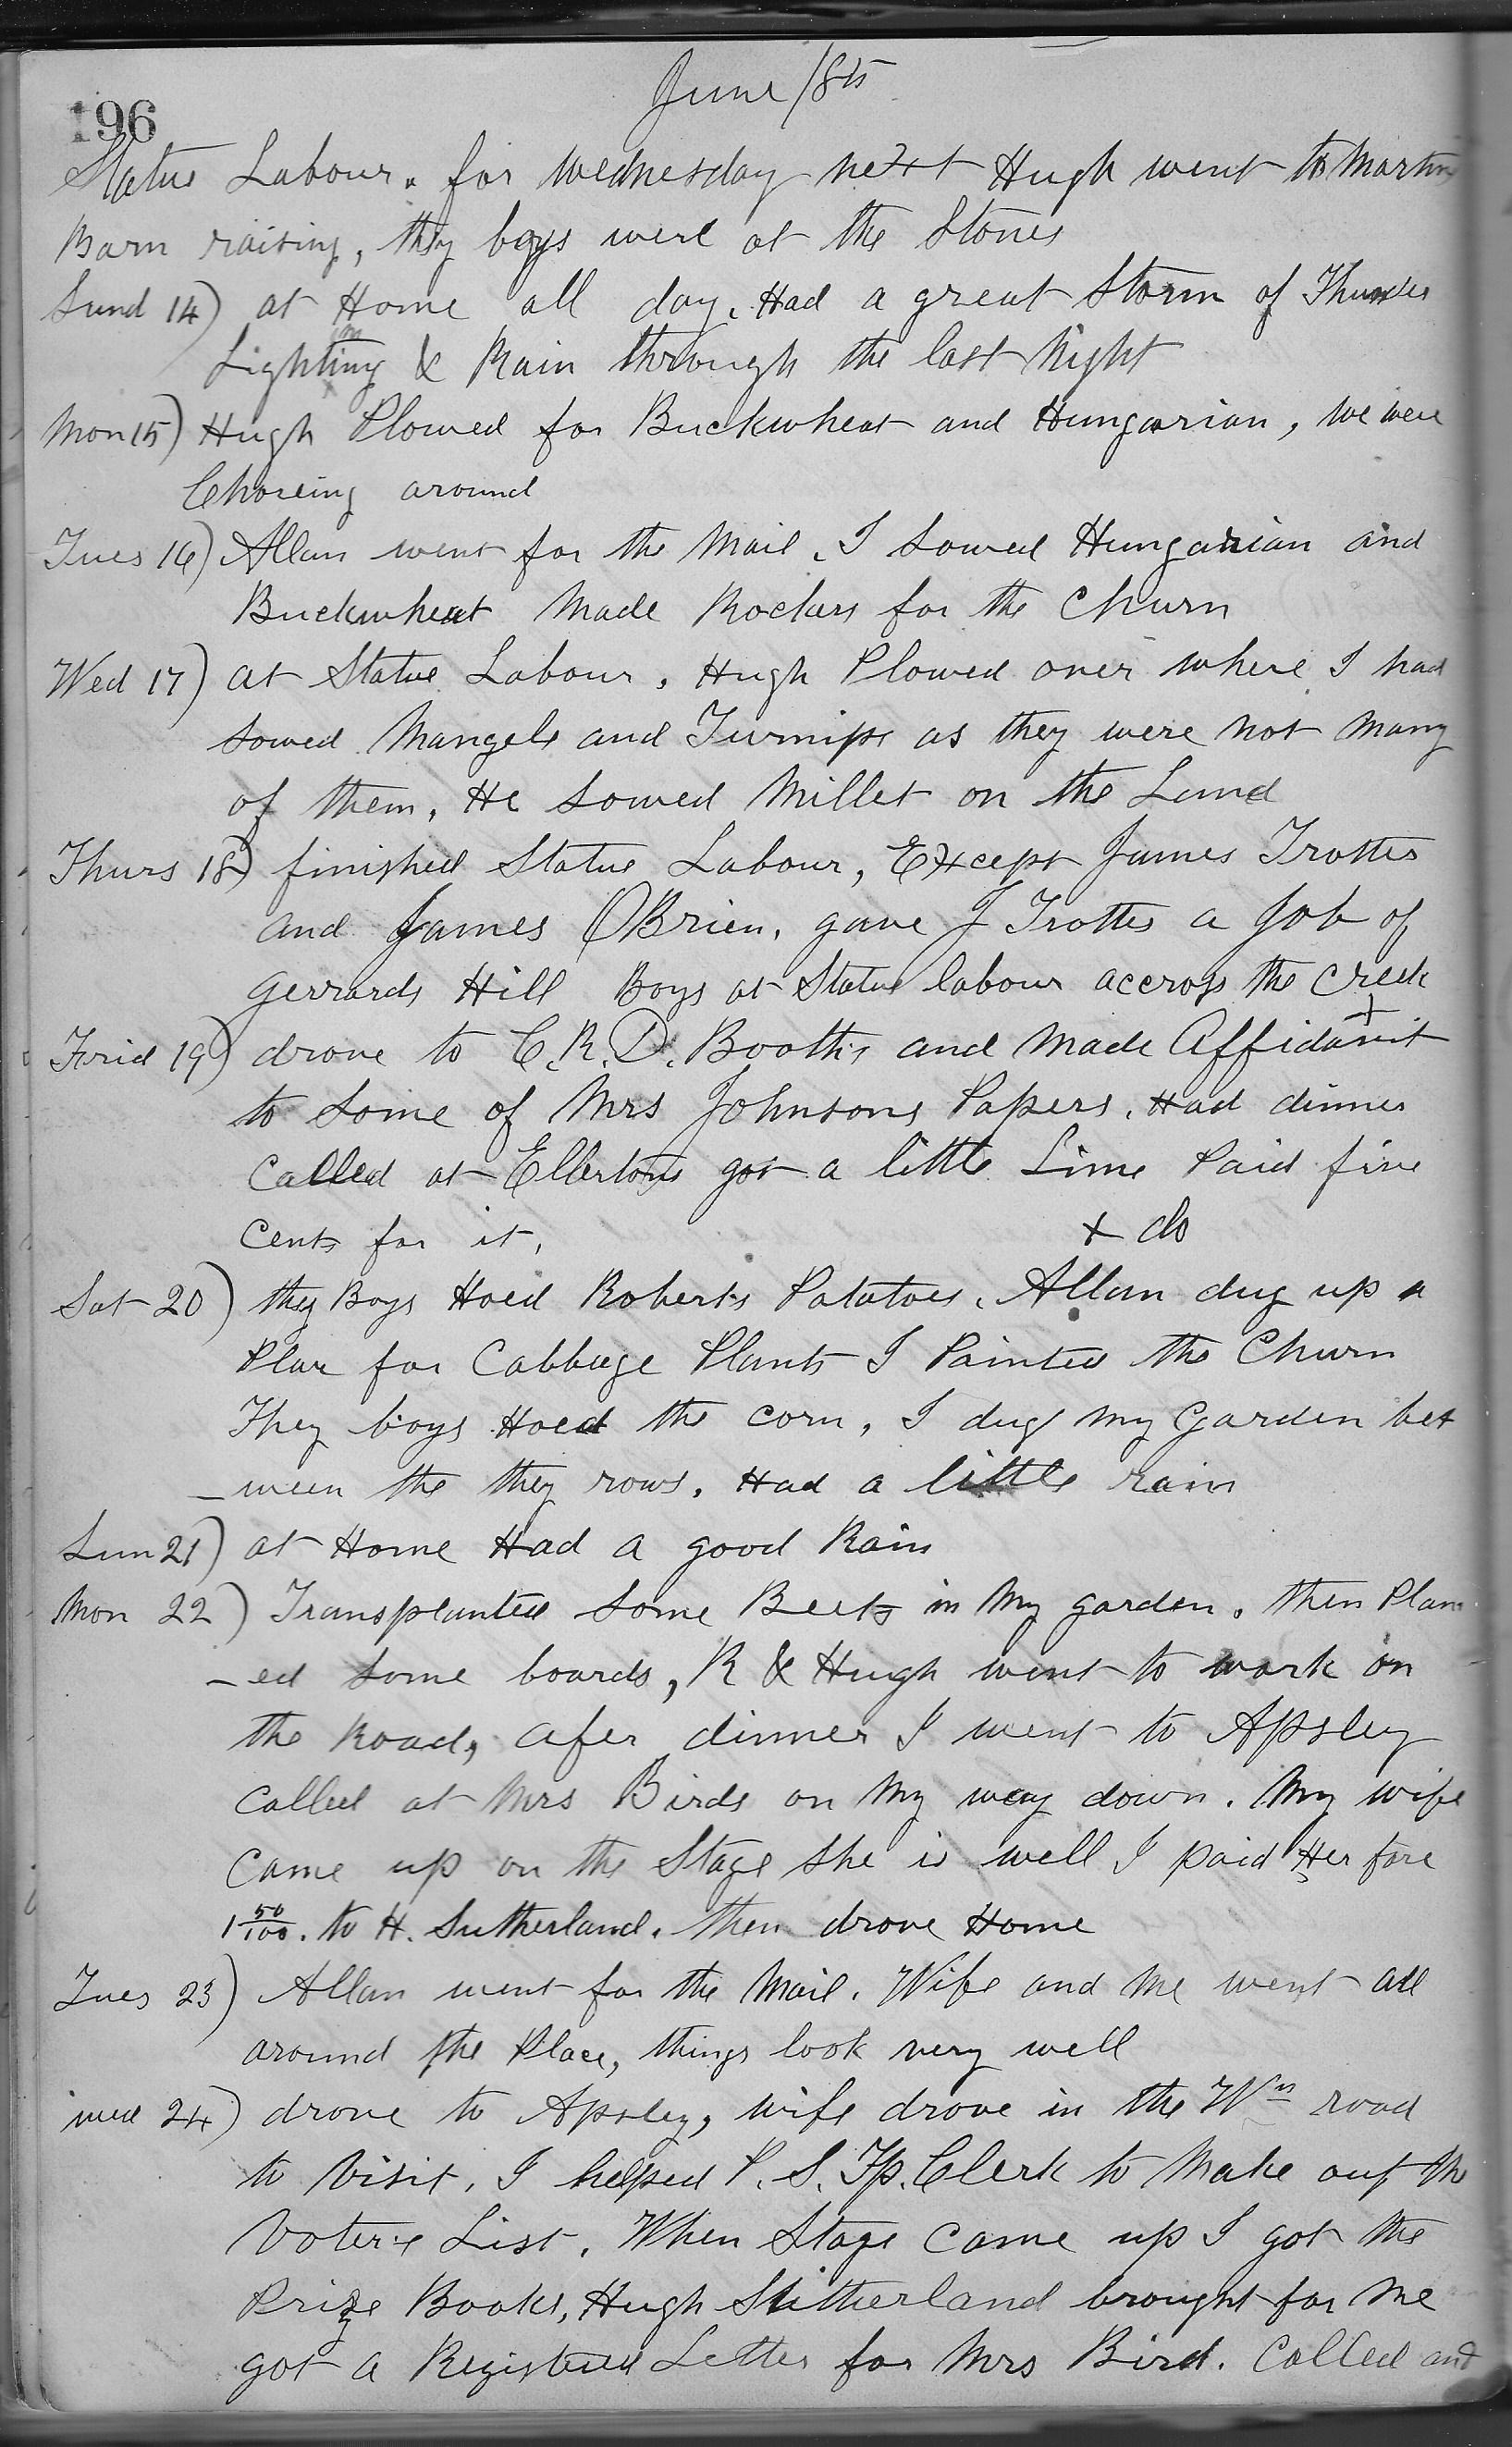 June 18th
196
Statue Labour. for Wednesday next Hugh went to Martins
Barn raising, thy boys were at the Stones
Sund 14) at Home all day. Had a great Storm of Thunder
Lightning & Rain through the last Night
Mon 15) Hugh Plowed for Buckwheat and Hungarian, we were
Choreing around
Tues 16) Allan went for the Mail. I Sowed Hungarian and
Buckwheat Made Rockers for the Churn
Wed 17) at Statue Labour, Hugh Plowed over where I had
Sowed Mangels and Turnips as they were not many
of them. He Sowed Millet on the Land
Thurs 18) finished Statue Labour, Except James Trotter
and James OBrien. gave J Trotter a Job of
Gerrards Hill Boys at Statue labour accross the Creek
Frid 19) drove to C. R. D. Booth's and Made Affidavit +
to Some of Mrs Johnsons Papers. Had dinner
Called at Ellertons got a little Lime Paid five
Cents for it. + do
Sat 20) they Boys Hoed Roberts Potatoes. Allan dug up a
Plac for Cabbage Plants I Painted the Churn
They boys Hoed the Corn. I dug my Garden bet
-ween the they rows. Had a little rain
Sun 21) at Home Had a good Rain
Mon 22) Transplanted Some Beets in My garden. then Plan
-ed Some boards, R & Hugh went to work on
the Road, afer dinner I went to Apsley
Called at Mrs Birds on My way down. My wife
Came up on the Stage She is well I paid Her fare
1 50/100. to H. Sutherland. then drove Home
Tues 23) Allan went for the Mail. Wife and Me went all
around the Place, things look very well
Wed 24) drove to Apsley, wife drove in the Wm road
to Visit. I helped P. S. Tp. Clerk to Make out the
Voter's List. When Stage Came up I got the
Prize Books, Hugh Sutherland brought for Me
got a Registered Letter for Mrs Bird. Called and